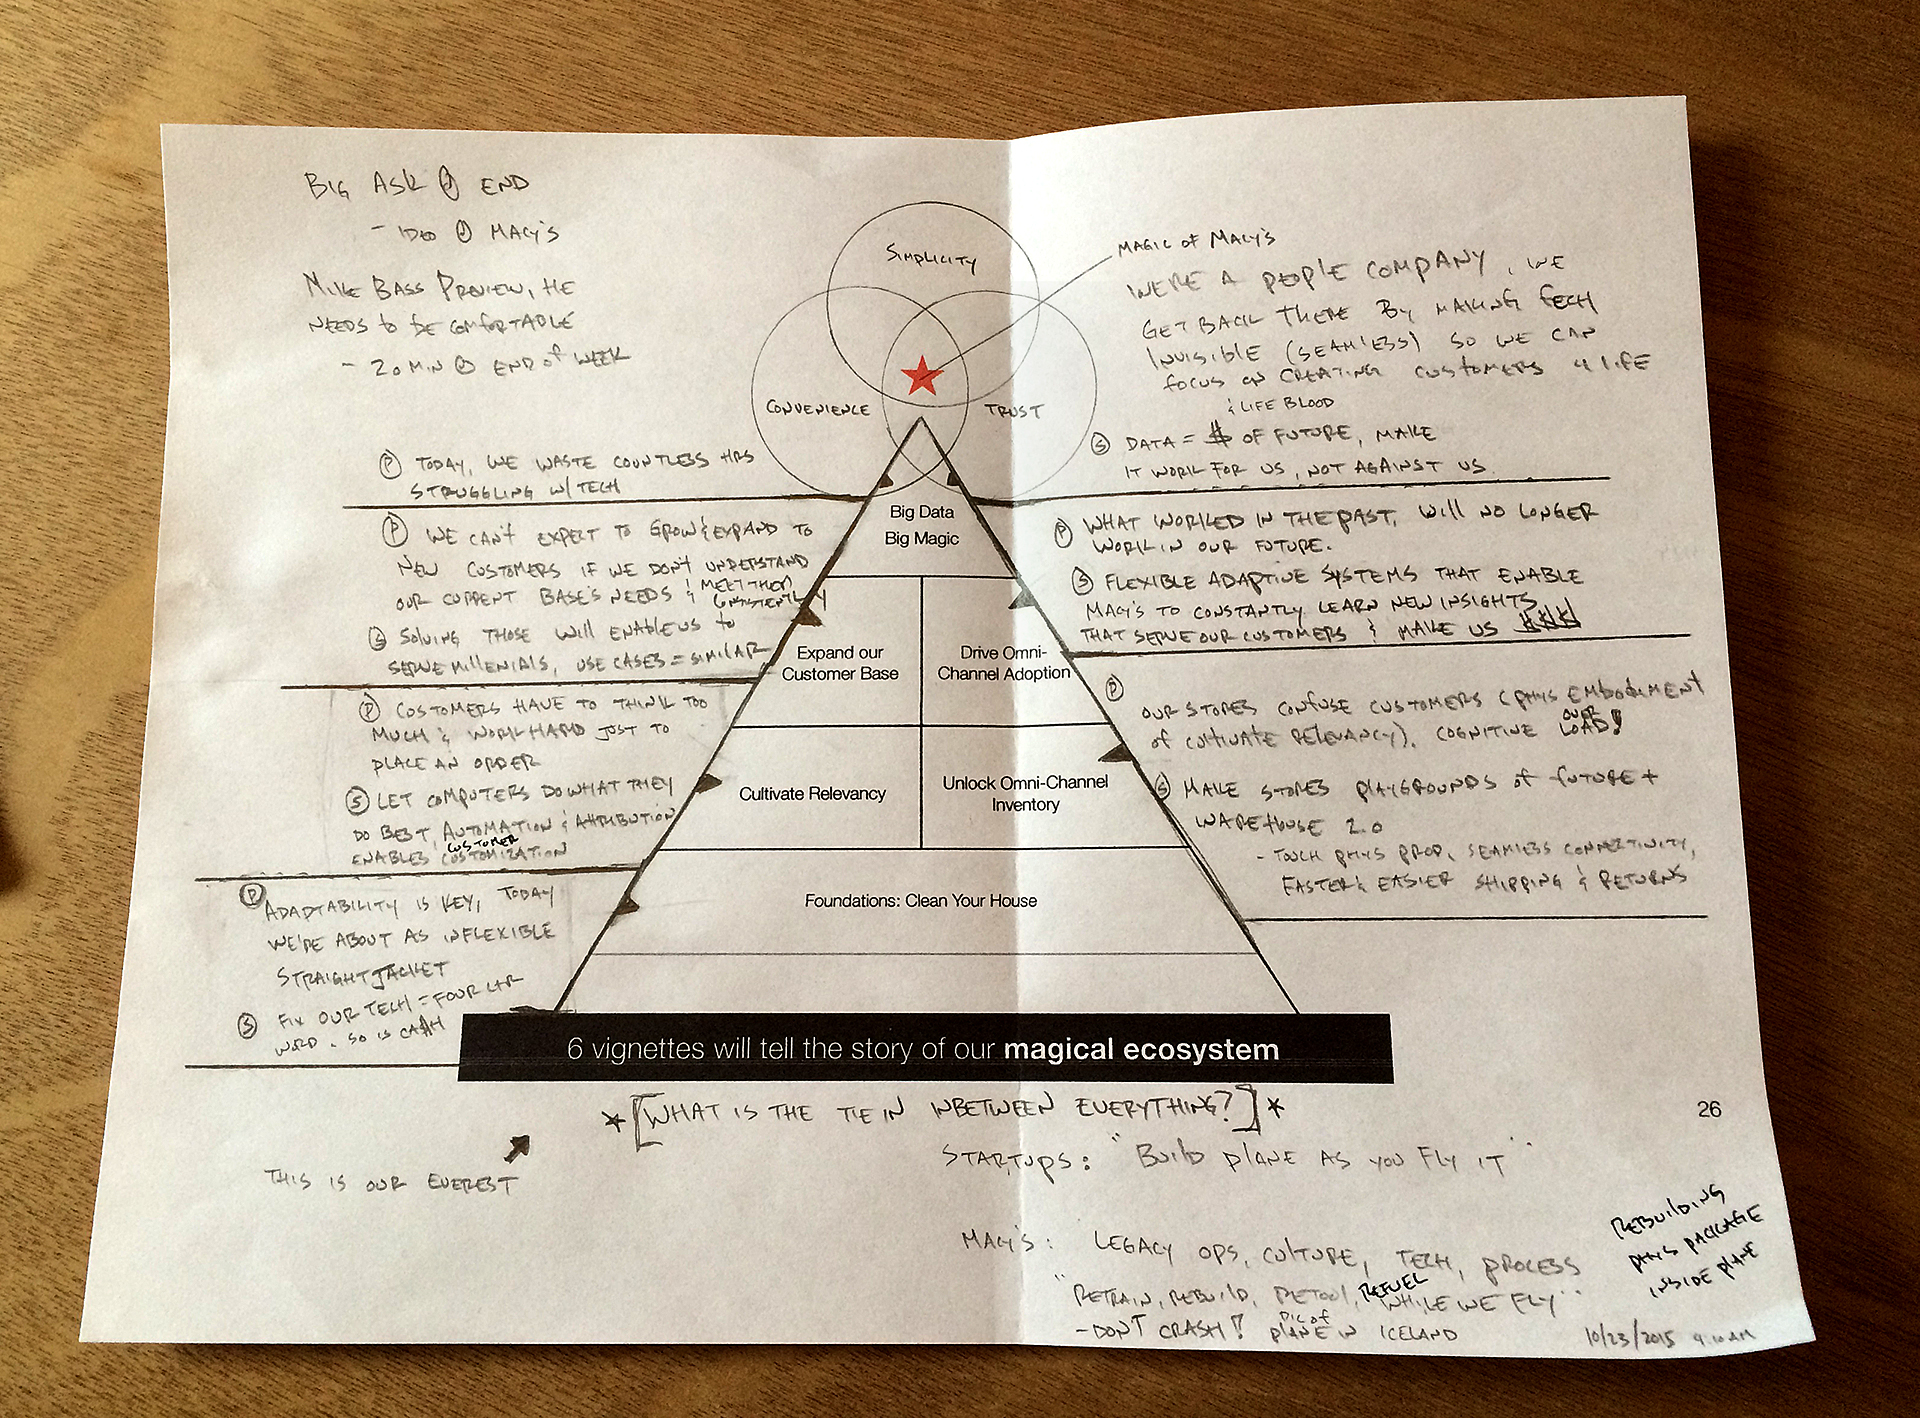 BIG ASK @ END
- IDEO @ MACY'S
MIKE BASS PREVIEW, HE
NEEDS TO BE COMFORTABLE
- 20 MIN @ END OF WEEK
SIMPLICITY
CONVENIENCE
TRUST
MAGIC OF MACY'S
WE'RE A PEOPLE COMPANY, WE
GET BACK THERE BY MAKING TECH
INVISIBLE (SEAMLESS) SO WE CAN
FOCUS ON CREATING CUSTOMERS 4 LIFE
& LIFE BLOOD
(S) DATA = $ OF FUTURE, MAKE
IT WORK FOR US, NOT AGAINST US.
(P) TODAY, WE WASTE COUNTLESS HRS
STRUGGLING W/ TECH
(P) WE CAN'T EXPECT TO GROW & EXPAND TO
NEW CUSTOMERS IF WE DON'T UNDERSTAND
OUR CURRENT BASE'S NEEDS & MEET THEM
CONSISTENTLY
(S) SOLVING THOSE WILL ENABLE US TO
SERVE MILLENIALS, USE CASES = SIMILAR
(P) COSTOMERS HAVE TO THINK TOO
MUCH & WORK HARD JUST TO
PLACE AN ORDER
(S) LET COMPUTERS DO WHAT THEY
DO BEST, AUTOMATION & ATTRIBUTION
ENABLES CUSTOMER CUSTOMIZATION
(P) ADAPTABILITY IS KEY, TODAY
WE'RE ABOUT AS INFLEXIBLE
STRAIGHTJACKET
(S) FIX OUR TECH = FOUR LTR
WORD. SO IS CA$H
Big Data
Big Magic
Expand our
Customer Base
Drive Omni-
Channel Adoption
Cultivate Relevancy
Unlock Omni-Channel
Inventory
Foundations: Clean Your House
(P) WHAT WORKED IN THE PAST, WILL NO LONGER
WORK IN OUR FUTURE.
(S) FLEXIBLE ADAPTIVE SYSTEMS THAT ENABLE
MACY'S TO CONSTANTLY LEARN NEW INSIGHTS
THAT SERVE OUR CUSTOMERS & MAKE US $$$
(P) OUR STORES CONFUSE CUSTOMERS (PHYS EMBODIMENT
OF CULTIVATE RELEVANCY). COGNITIVE OVER LOAD!
(S) MAKE STORES PLAYGROUNDS OF FUTURE +
WAREHOUSE 2.0
- TOUCH PHYS PROD, SEAMLESS CONNECTIVITY,
FASTER & EASIER SHIPPING & RETURNS
6 vignettes will tell the story of our magical ecosystem
*[WHAT IS THE TIE IN INBETWEEN EVERYTHING?]*
26
THIS IS OUR EVEREST
STARTUPS: "BUILD PLANE AS YOU FLY IT"
MACY'S: LEGACY OPS, CULTURE, TECH, PROCESS
"RETRAIN, REBUILD, RETOOL, REFUEL WHILE WE FLY"
- DON'T CRASH! PIC OF PLANE IN ICELAND
REBUILDING
PHYS PACKAGE
INSIDE PLANE
10/23/2015 9:10 AM